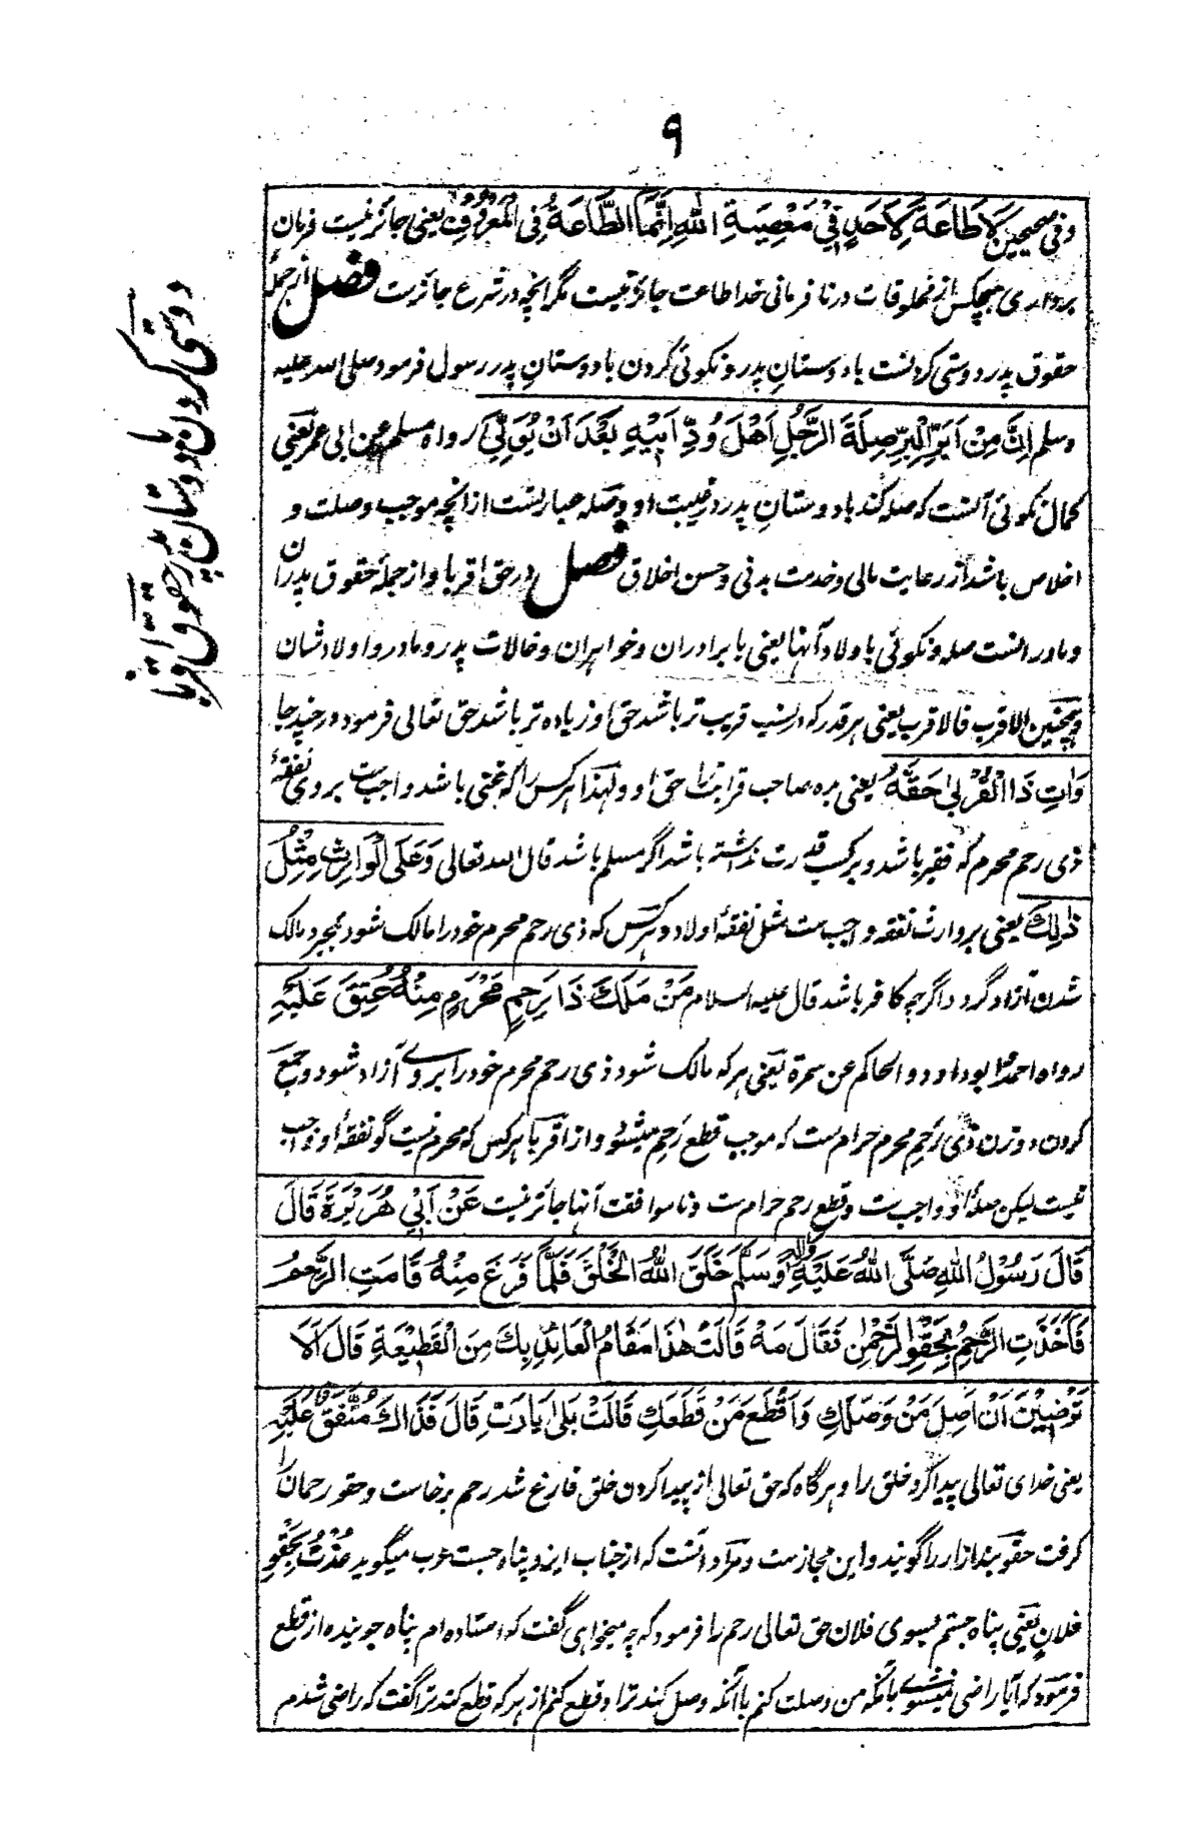 ۹
وفی صحیحین لَا طَاعَةَ لِاَحَدٍ فِیْ مَعْصِیَةِ اللهِ اِنَّمَا الطَّاعَةُ فِی الْمَعْرُوْفِ یعنی جائز نیست فرمان
برداری هیچکس از مخلوقات در نا فرمانی خدا طاعت جائز نیست مگر انچه در شرع جائزست فصل از جمله
حقوق پدر دوستی کردنست با دوستانِ پدر و نکوئی کردن با دوستانِ پدر رسول فرمود صلی الله علیه
وسلم اِنَّ مِنْ اَبَرِّ الْبِرِّ صِلَةَ الرَّجُلِ اَهْلَ وُدِّ اَبِیْهِ بَعْدَ اَنْ یُوَلِّیَ رواه مسلم عن ابی عمر یعنی
کمال نکوئی آنست که صله کند با دوستانِ پدر در غیبت او و صله عبارتست از انچه موجب وصلت و
اخلاص باشد از رعایت مالی و خدمت بدنی و حسن اخلاق فصل در حق اقربا و از جملۀ حقوق پدران
و مادر انست صله و نکوئی با ولاد آنها یعنی با برادران و خواهران و خالات پدر و مادر و اولاد شان
وهمچنین الاقرب فالاقرب یعنی هر قدر که در نسب قریب تر باشد حق او زیاده تر باشد حق تعالی فرمود در چند جا
وَاٰتِ ذَا الْقُرْبٰی حَقَّهٗ یعنی بده صاحب قرابت را حق او و لهذا هر کس را که غنی باشد واجب ست بر وی نفقۀ
ذی رحم محرم که فقیر باشد و بر کسب قدرت نداشته باشد اگر مسلم باشد قال الله تعالی وَعَلَی الْوَارِثِ مِثْلُ
ذٰلِکَ یعنی بر وارث نفقه واجب ست مثل نفقۀ اولاد و هر کس که ذی رحم محرم خود را مالک شود بمجرد مالک
شدن آزاد گردد اگرچه کافر باشد قال علیه السلام مَنْ مَلَکَ ذَا رَحِمٍ مَحْرَمٍ مِنْهُ عُتِقَ عَلَیْهِ
رواه احمد و ابوداود و الحاکم عن سمرة یعنی هر که مالک شود ذی رحم محرم خود را بروے آزاد شود و جمع
کردن دو زن ذی رحم محرم حرام ست که موجب قطع رحم میشود و از اقربا هر کس که محرم نیست گو نفقۀ او واجب
نیست لیکن صلۀ او واجب ست و قطع رحم حرام ست و نا موافقت آنها جائز نیست عَنْ اَبِیْ هُرَیْرَةَ قَالَ
قَالَ رَسُوْلُ اللهِ صَلَّی اللهُ عَلَیْهِ وَاٰلِهِ وَسَلَّمَ خَلَقَ اللهُ الْخَلْقَ فَلَمَّا فَرَغَ مِنْهُ قَامَتِ الرَّحِمُ
فَاَخَذَتِ الرَّحِمُ بِحَقْوِ الرَّحْمٰنِ فَقَالَ مَهْ قَالَتْ هٰذَا مَقَامُ الْعَائِذِ بِکَ مِنَ الْقَطِیْعَةِ قَالَ اَلَا
تَرْضَیْنَ اَنْ اَصِلَ مَنْ وَصَلَکِ وَاَقْطَعَ مَنْ قَطَعَکِ قَالَتْ بَلٰی یَا رَبِّ قَالَ فَذَاکَ مُتَّفَقٌ عَلَیْهِ
یعنی خدای تعالی پیدا کرد خلق را و هر گاه که حق تعالی از پیدا کردن خلق فارغ شد رحم برخاست و حقو رحمان را
گرفت حقو بند ازار را گویند و این مجازست و مراد آنست که از جناب ایزد پناه جست عرب میگوید عُذْتُ بِحَقْوِ
فلانٍ یعنی پناه جستم بسوی فلان حق تعالی رحم را فرمود که چه میخواهی گفت که استاده ام پناه جوینده از قطع
فرمود که آیا راضی نمیشوے بآنکه من وصلت کنم با آنکه وصل کند ترا و قطع کنم از هر که قطع کند ترا گفت که راضی شدم
دوستی کردن با دوستان پدر
حقوق اقربا